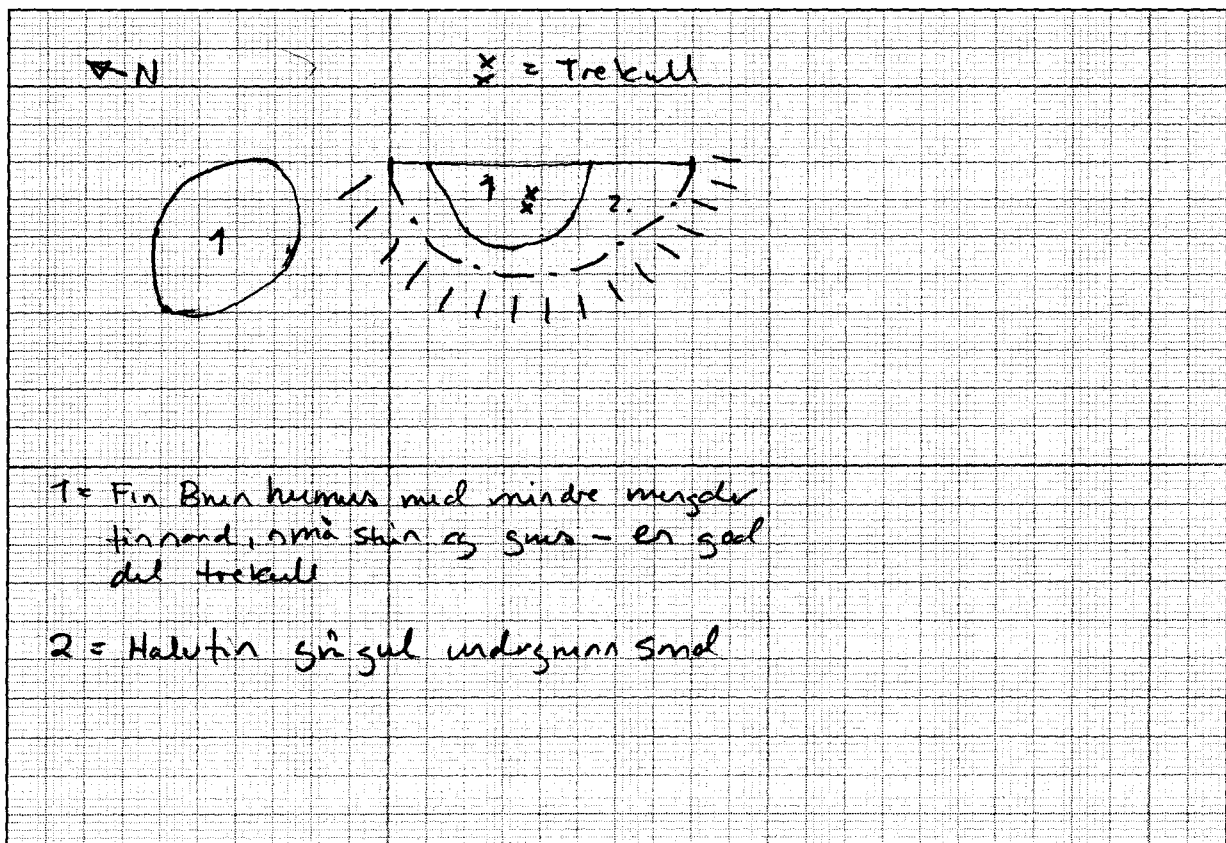 N
x x = Trekull
1
1 x x
2.
1 = Fin Brun humus med mindre mengder
finsand, små stein og grus - en god
del trekull
2 = Halvfin grå gul undergrunn sand